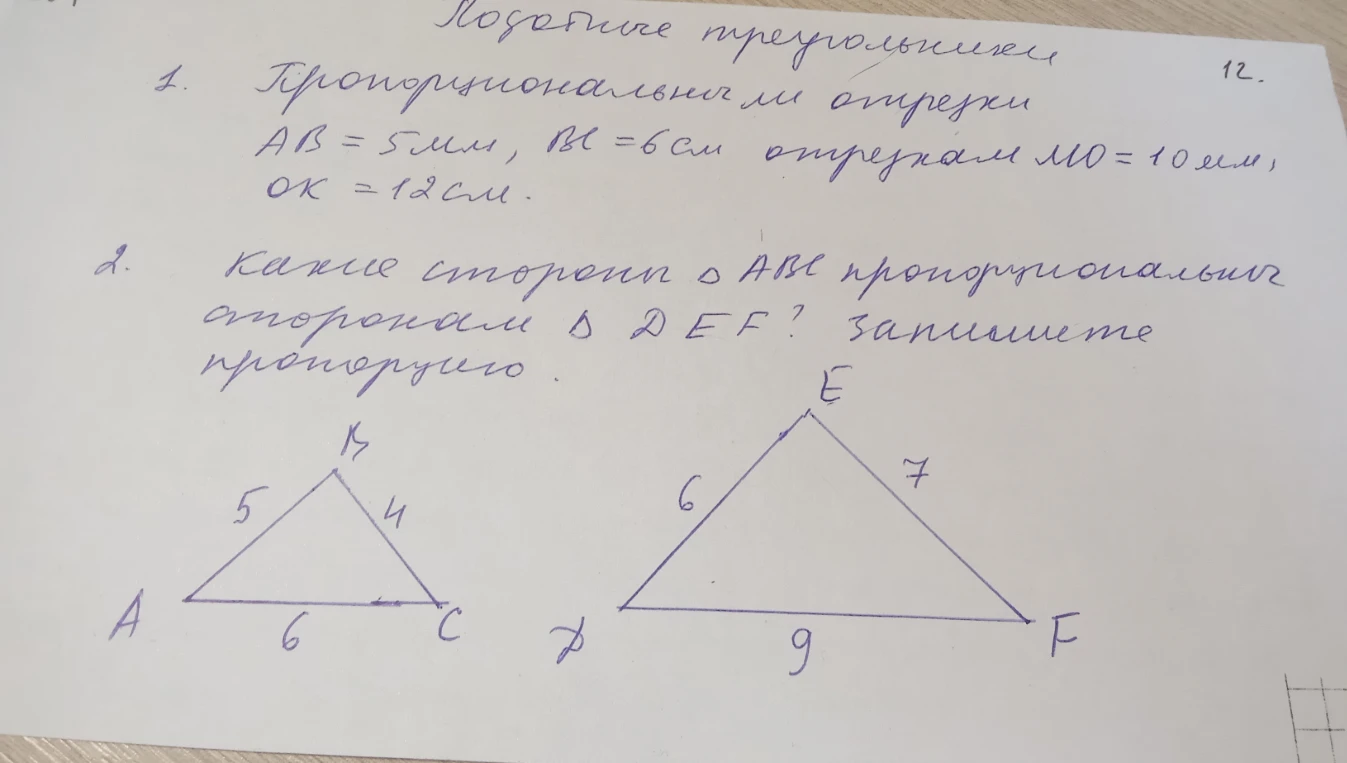 Подобные треугольники
12.
1. Пропорциональны ли отрезки
AB = 5 мм, BC = 6 см отрезкам MO = 10 мм,
OK = 12 см.
2. Какие стороны Δ ABC пропорциональны
сторонам Δ DEF? Запишите
пропорцию.
E
B
5
4
6
7
A
6
C
D
9
F